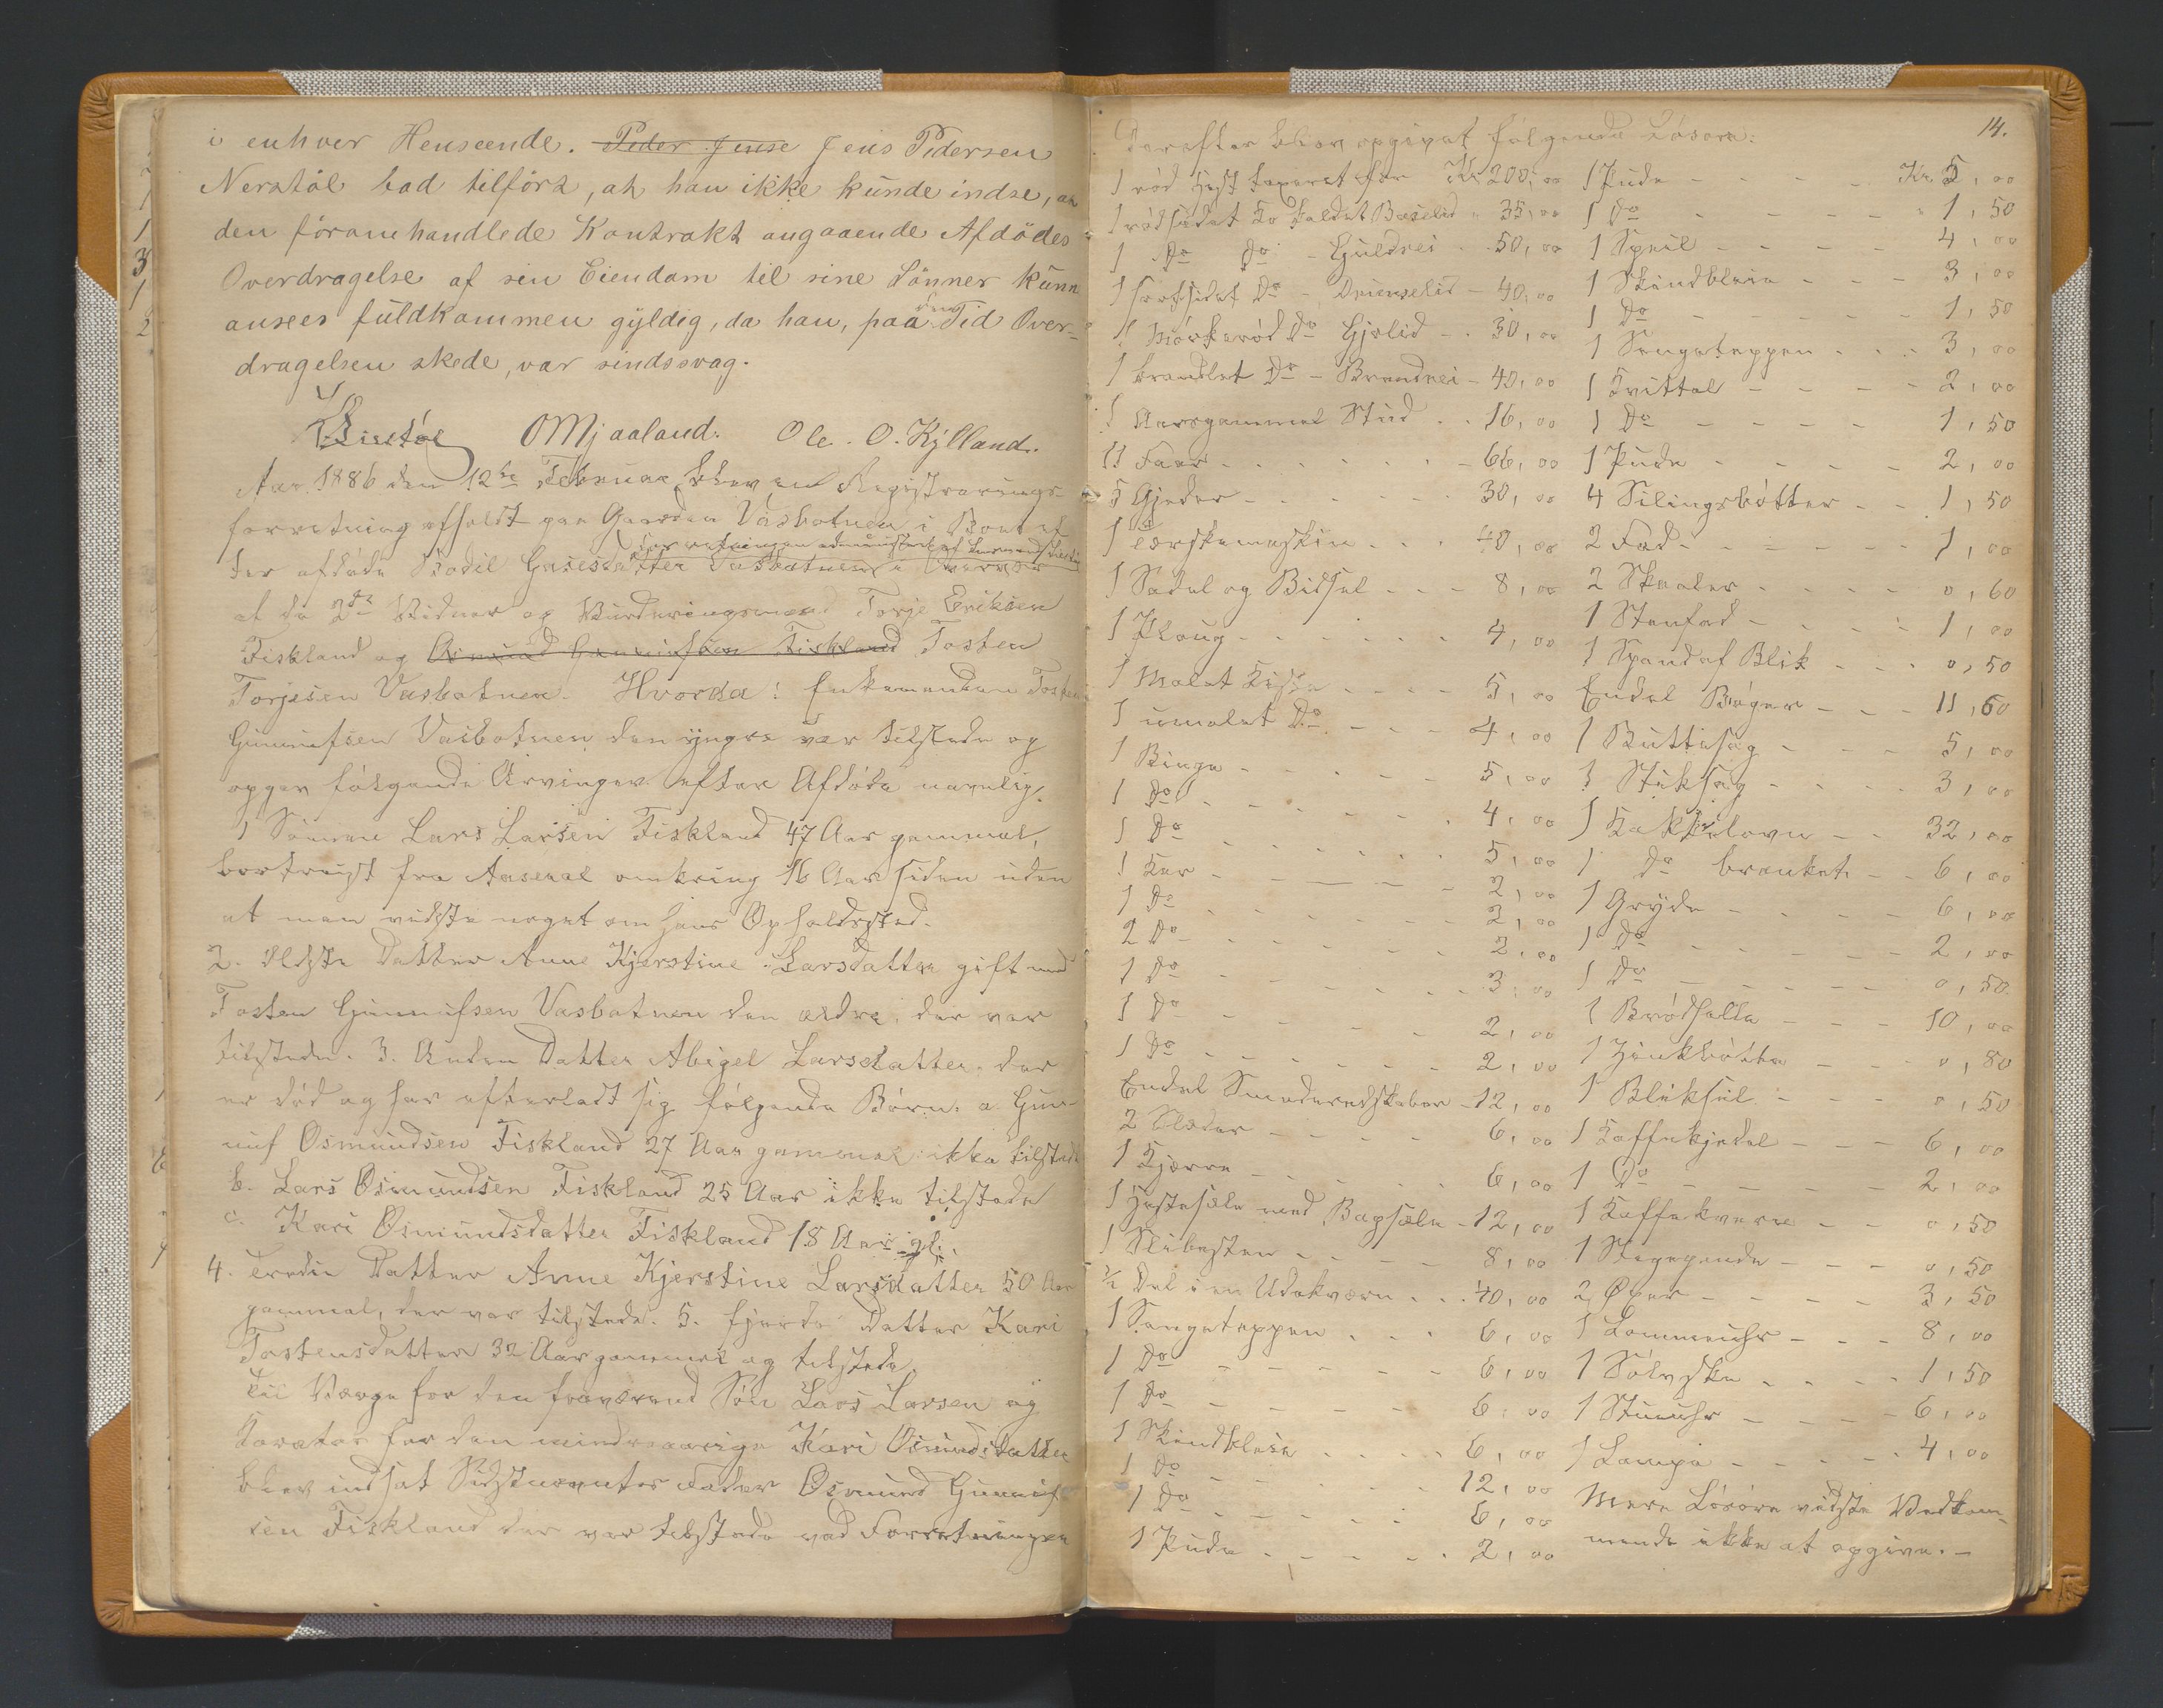 i enhver Henseende. Peder Jense Jens Pedersen
Nerstöl bad tilfört, at han ikke kunde indse, at
den föromhandlede Kontrakt angaaende Afdödes
Overdragelse af sin Eiendom til sine Sönner kunn
ansees fuldkommen gyldig, da han, paa den Tid Over-
dragelsen skede, var sindssvag.
OMjaaland. Ole. O. Kylland.
Aar 1886 den 12te Februar blev en Registrerings-
forretning afholdt paa Gaarden Vasbotnen i Boet ef
ter afdöde Bodil Vasbotnen
Forretningen administreret af
af de 2de Vidner og Vurderingsmænd Torje Eriksen
Fiskland og Osmund Gunnufsen Fiskland Tosten
Torjesen Vasbotnen. Hvorda: Enkemanden Tosten
Gunnufsen Vasbotnen den yngre var tilstede og
opgav fölgende Arvinger efter Afdöde navnlig.
1 Sönnen Lars Larsen Fiskland 47 Aar gammel,
bortreist fra Arendal omkring 16 Aar siden uden
at man vidste noget om hans Opholdssted.
2. Ældste Datter Anne Kjerstine Larsdatter gift med
Tosten Gunnufsen Vasbotnen den ældre, der var
tilstede. 3. Anden Datter Abigel Larsdatter, der
er död og har efterladt sig fölgende Börn. a. Gun-
nuf Osmundsen Fiskland 27 Aar gammel ikke tilstede
b. Lars Osmundsen Fiskland 25 Aar ikke tilstede
c. Kari Osmundsdatter Fiskland 18 Aar gl.
4. Tredie Datter Anne Kjerstine Larsdatter 50 Aar
gammel, der var tilstede. 5. fjerde Datter Kari
Tostensdatter 32 Aar gammel og tilstede.
Til Værge for den fraværend Sön Lars Larsen og
Kurator for den mindreaarige Kari Osmundsdatter
blev indsat Sidstnævntes Fader Osmund Gunnuf-
sen Fiskland der var tilstede ved Forretningen
14.
Derefter blev opgivet fölgende Lösöre:
1 röd Hest taxeret for Kr 200,00
1 rödsidet Ko kaldet Baselid 35,00
1 Do Do - Guldrei 50,00
1 sortsidet Do - 40,00
1 mörkeröd Do Gjelid 30,00
1 brandet Do - Brandrei 40,00
1 Aarsgammel Stud 16,00
11 Faar 66,00
5 Gjeder 30,00
1 Tærskemaskin 40,00
1 Sadel og Bidsel 8,00
1 Ploug 4,00
1 Malet Kiste 5,00
1 umalet Do 4,00
1 Binge 5,00
1 Do 4,00
1 Do 5,00
1 Kar 2,00
1 Do 2,00
2 Do 2,00
1 Do 3,00
1 Do 2,00
1 Do 2,00
Endel Smederedskaber 12,00
2 Slæder 6,00
1 Kjærre 6,00
1 Hestesele med Bagsele 12,00
1 Slibesten 8,00
1/2 Del i en Udekværn 40,00
1 Sengeteppen 6,00
1 Do 6,00
1 Do 6,00
1 Skindfleia 6,00
1 Do 12,00
1 Do 6,00
1 Pude 2,00
1 Pude Kr. 5,00
1 Do 1,50
1 Speil 4,00
1 Skindfleia 3,00
1 Do 1,50
1 Sengeteppen 3,00
1 Kvittel 2,00
1 Do 1,50
1 Pude 2,00
4 Silingsbötter 1,50
2 Fad 1,00
2 Skaaler 0,60
1 Stenfad 1,00
1 Spand af Blik 0,50
Endel Böger 11,60
1 5,00
1 Stiksag 3,00
1 Kakkelovn 32,00
1 do brænkt 6,00
1 Gryde 6,00
1 Do 2,00
1 Do 0,50
1 Brödhella 10,00
1 Zinkbötte 0,80
1 Bliksil 0,50
1 Kaffekjedel 6,00
1 Do 2,00
1 Kaffekværn 0,50
1 Stegepande 0,50
2 Öxer 3,50
1 Lommeuhr 8,00
1 Sölvske 1,50
1 Stueuhr 6,00
1 Lampe 4,00
Mere Lösöre vidste Vedkom-
mende ikke at opgive. -